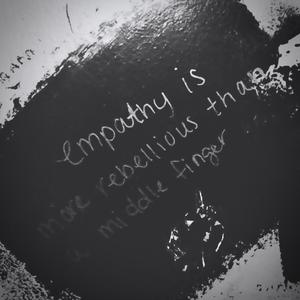 empathy is
more rebellious than
a middle finger